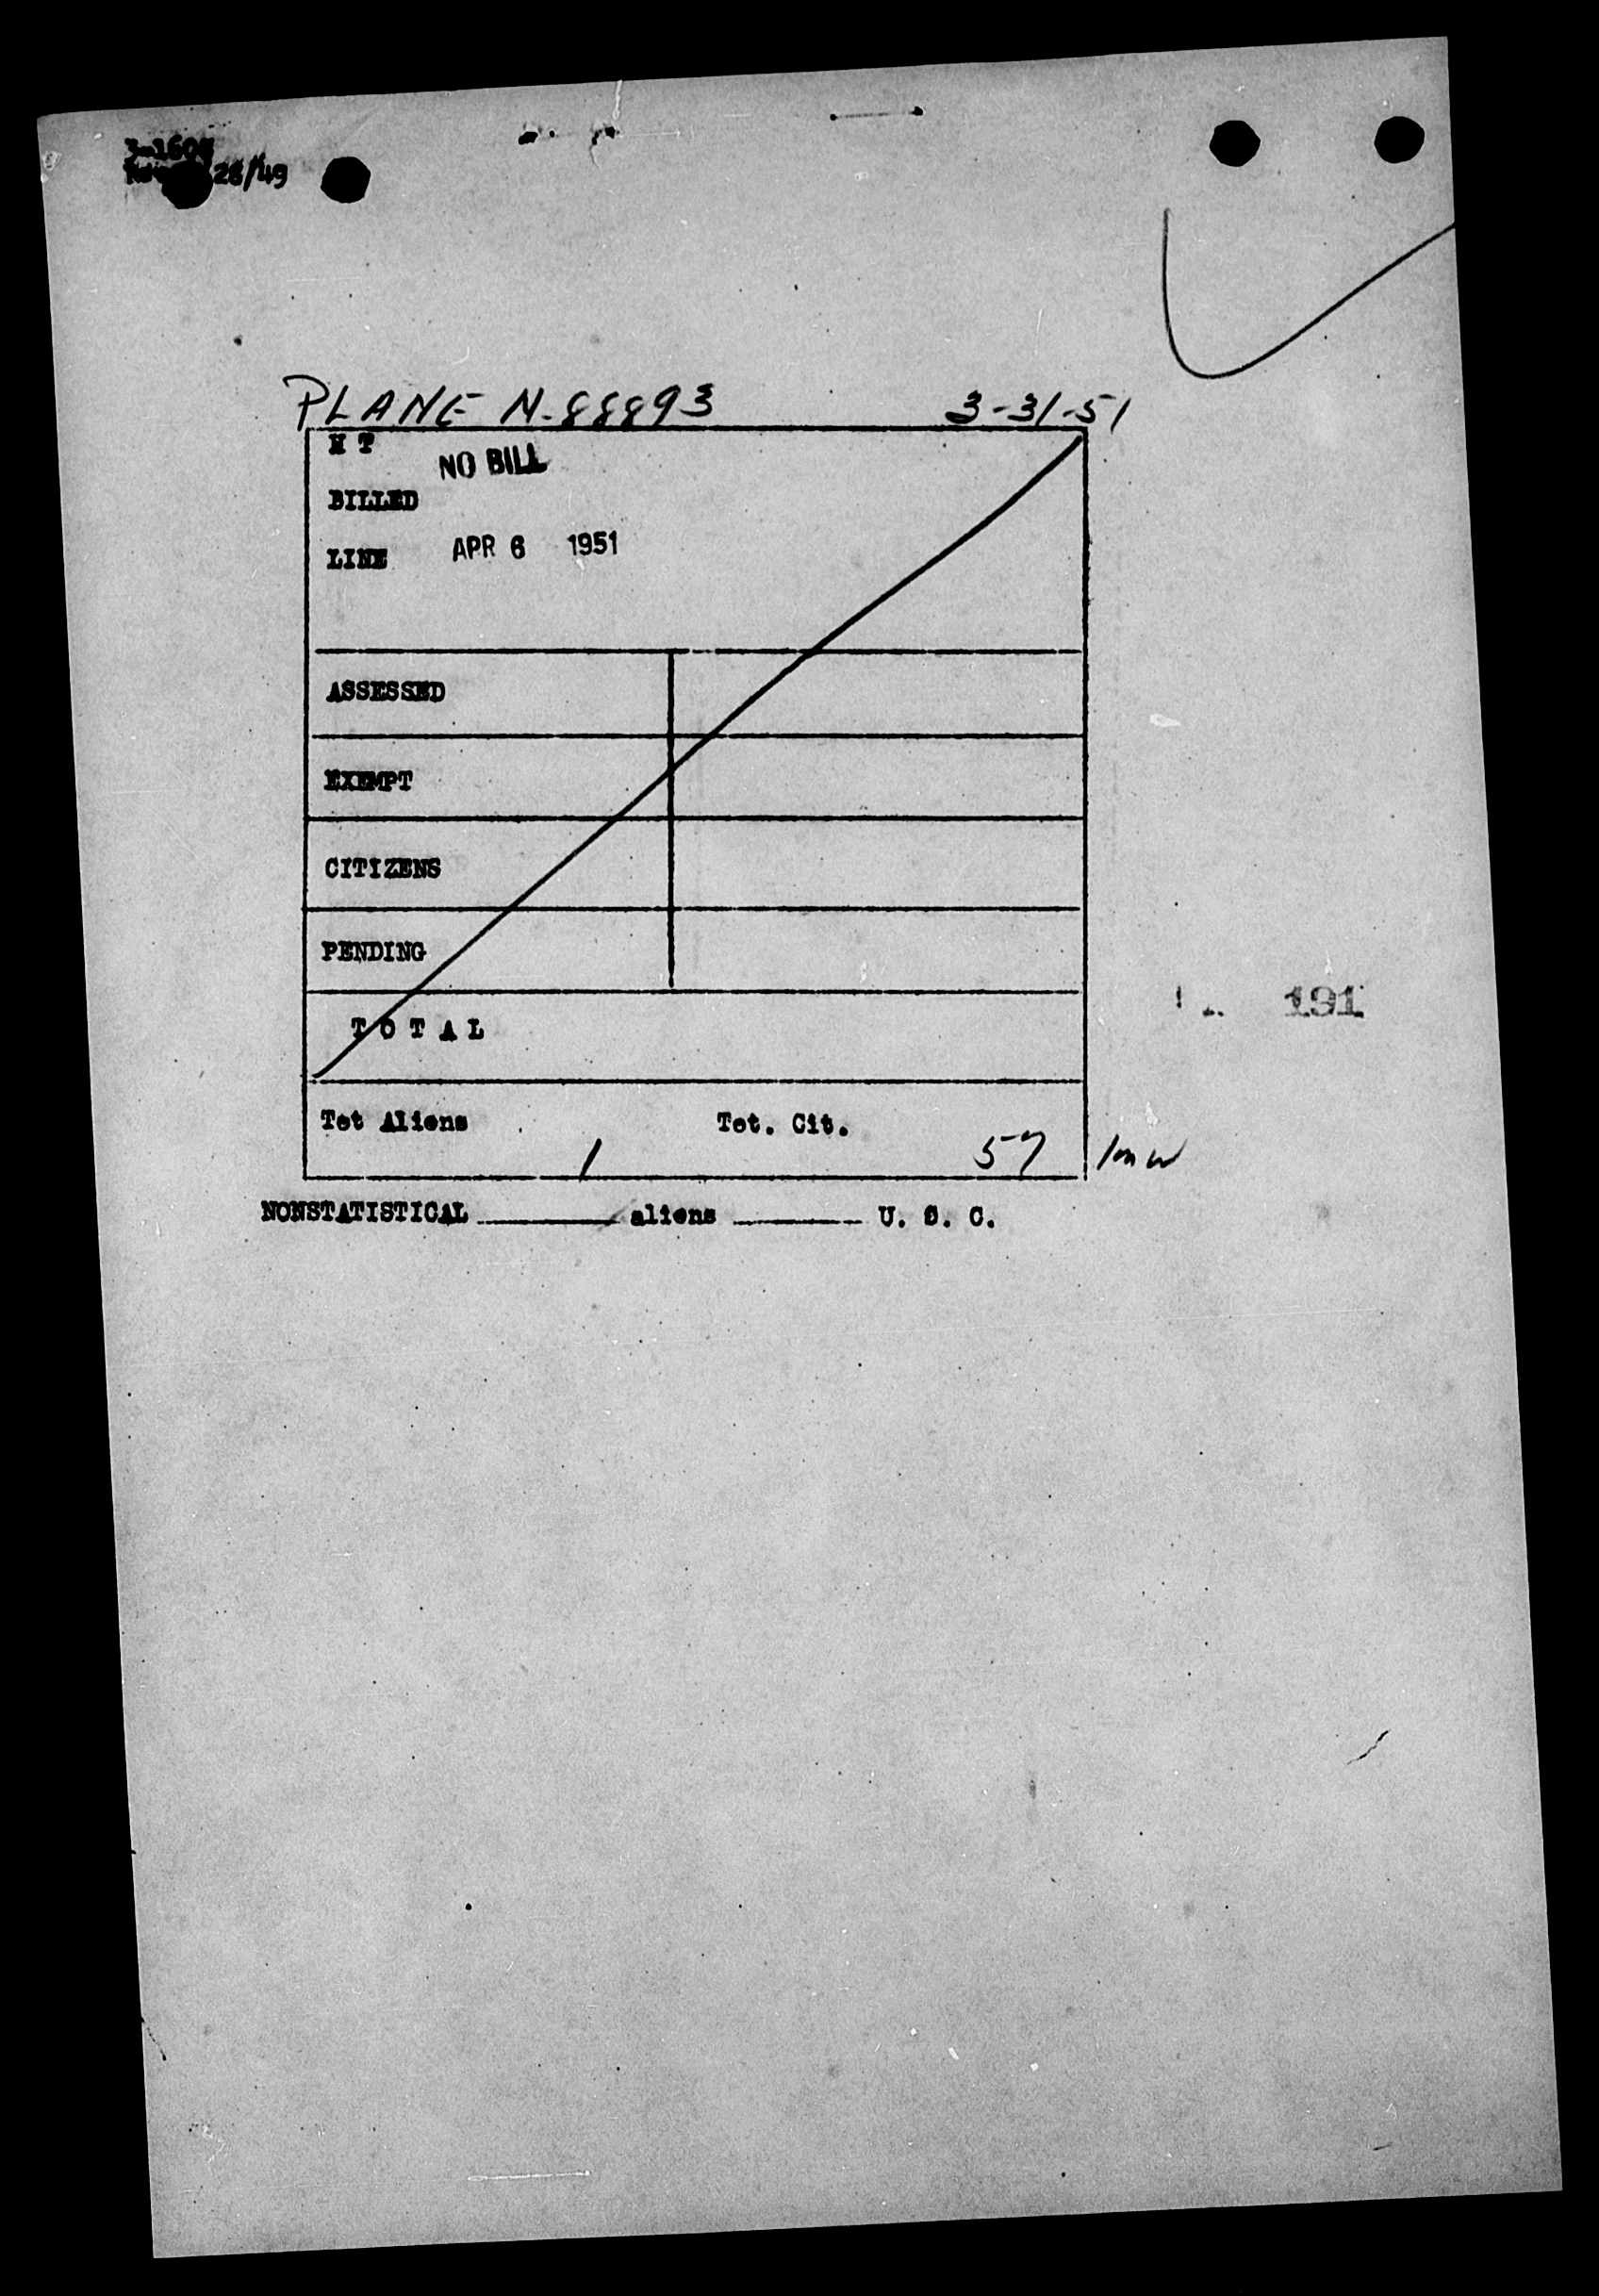 28/49
PLANE N-88893 3-31-51
H T
NO BILL
BILLED
LINE APR 6 1951
ASSESSED
EXEMPT
CITIZENS
PENDING
T O T A L
Tot Aliens Tot. Cit.
1 57
NONSTATISTICAL ______ aliens ______ U. S. C.
191